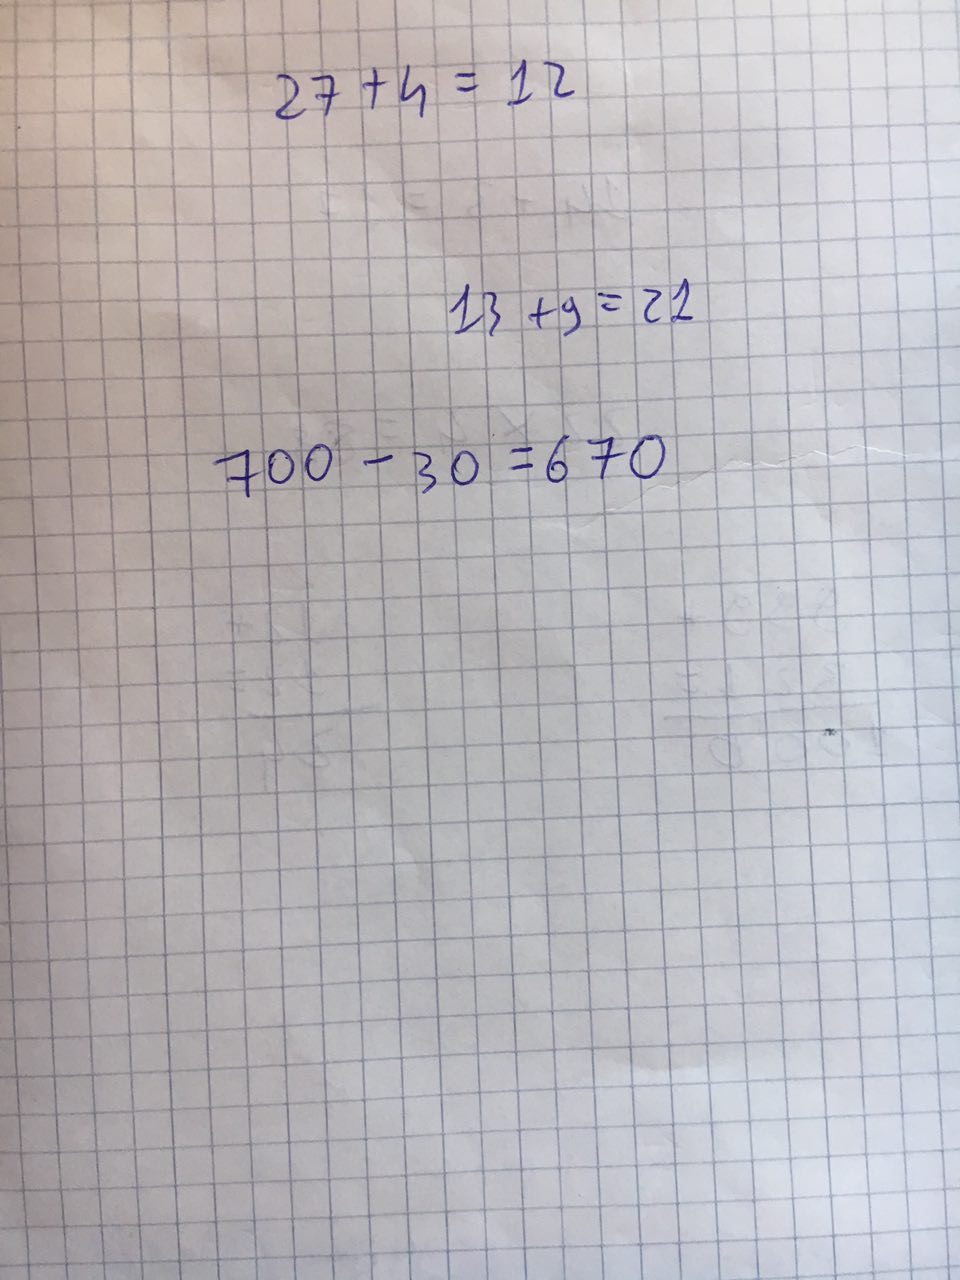 27 + 4 = 12
13 + 9 = 21
700 - 30 = 670